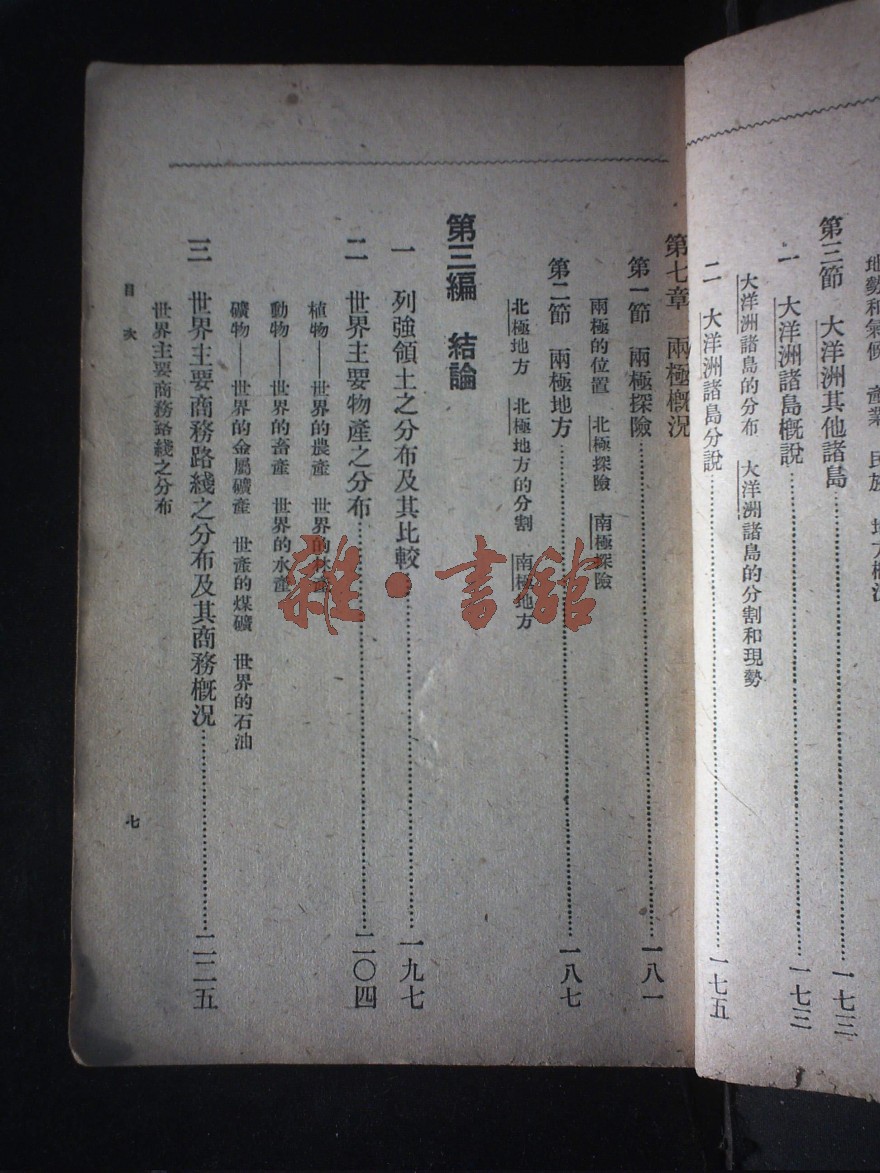 地勢和氣候　產業　民族　地方概況
第三節　大洋洲其他諸島……一七三
一　大洋洲諸島概說……一七三
大洋洲諸島的分布　大洋洲諸島的分割和現勢
二　大洋洲諸島分說……一七五
第七章　兩極概況
第一節　兩極探險……一八一
兩極的位置　北極探險　南極探險
第二節　兩極地方……一八七
北極地方　北極地方的分割　南極地方
第三編　結論
一　列強領土之分布及其比較……一九七
二　世界主要物產之分布……二〇四
植物——世界的農產　世界的林產
動物——世界的畜產　世界的水產
礦物——世界的金屬礦產　世產的煤礦　世界的石油
三　世界主要商務路綫之分布及其商務概況……二二五
世界主要商務路綫之分布
目次
七
雜·書館